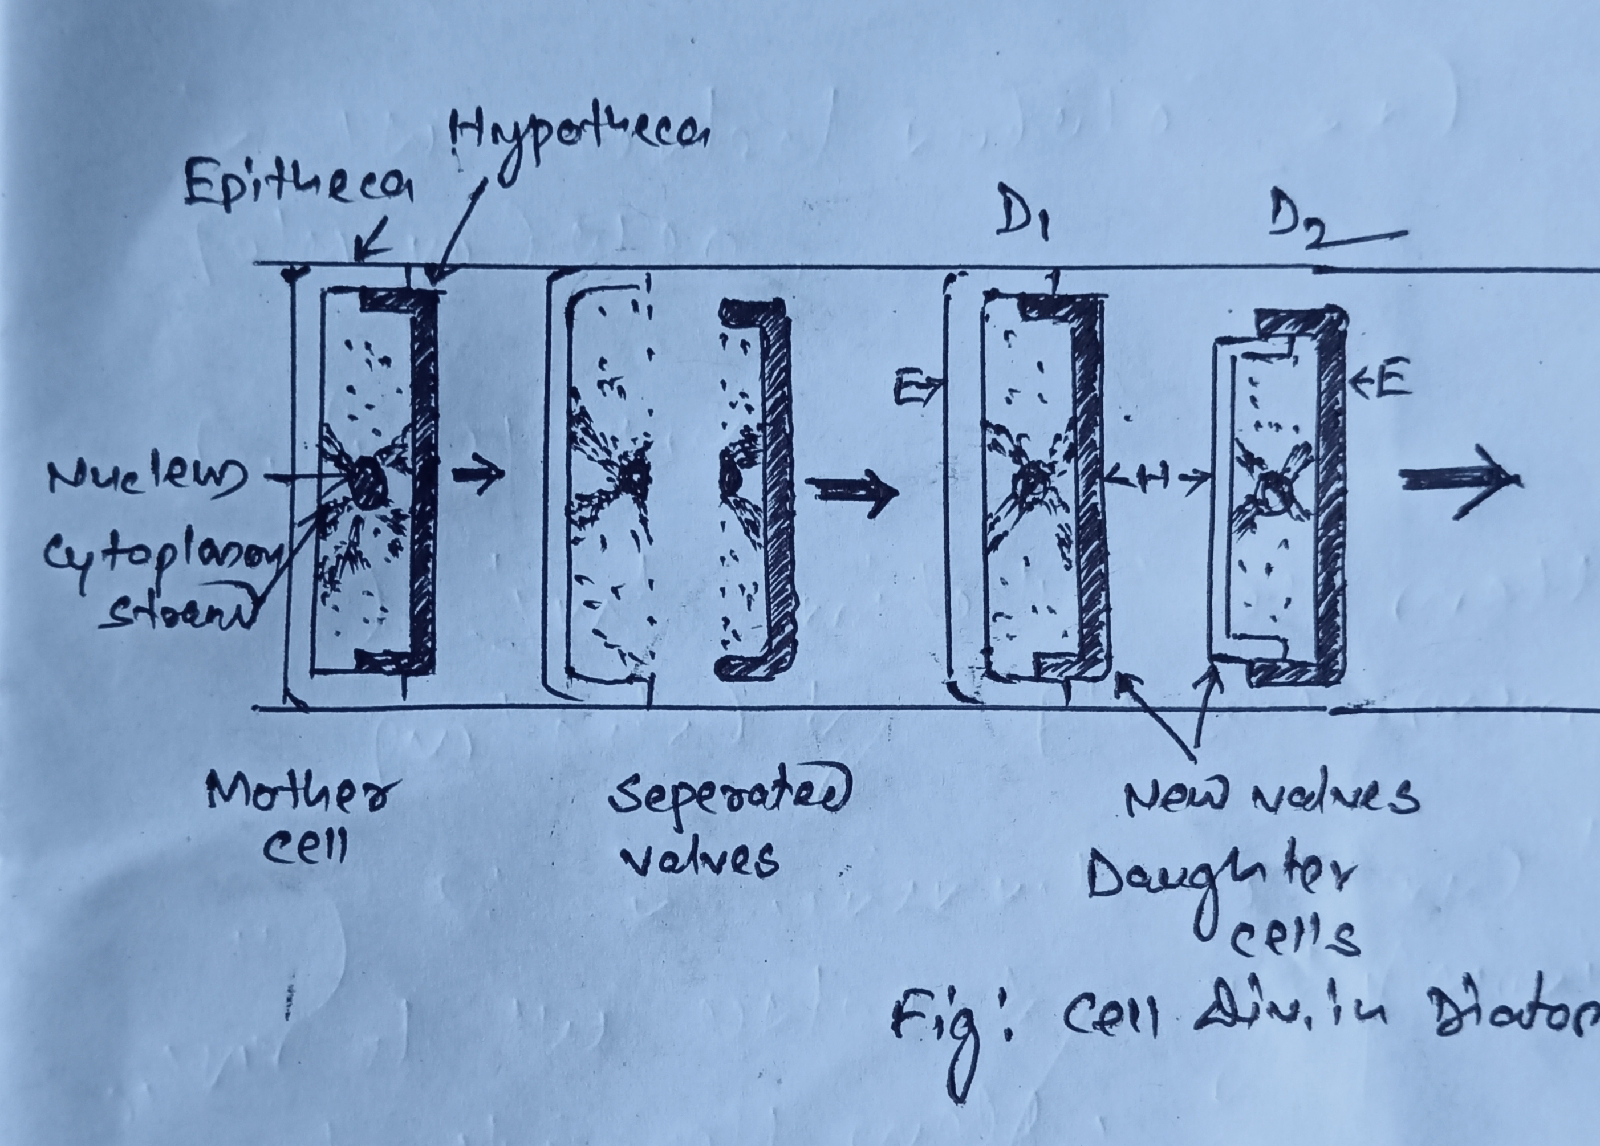 Hypotheca
Epitheca
D1
D2
E
E
Nucleus
H
Cytoplasm
strand
Mother
cell
Seperated
valves
New valves
Daughter
cells
Fig: Cell Div. in Diatom